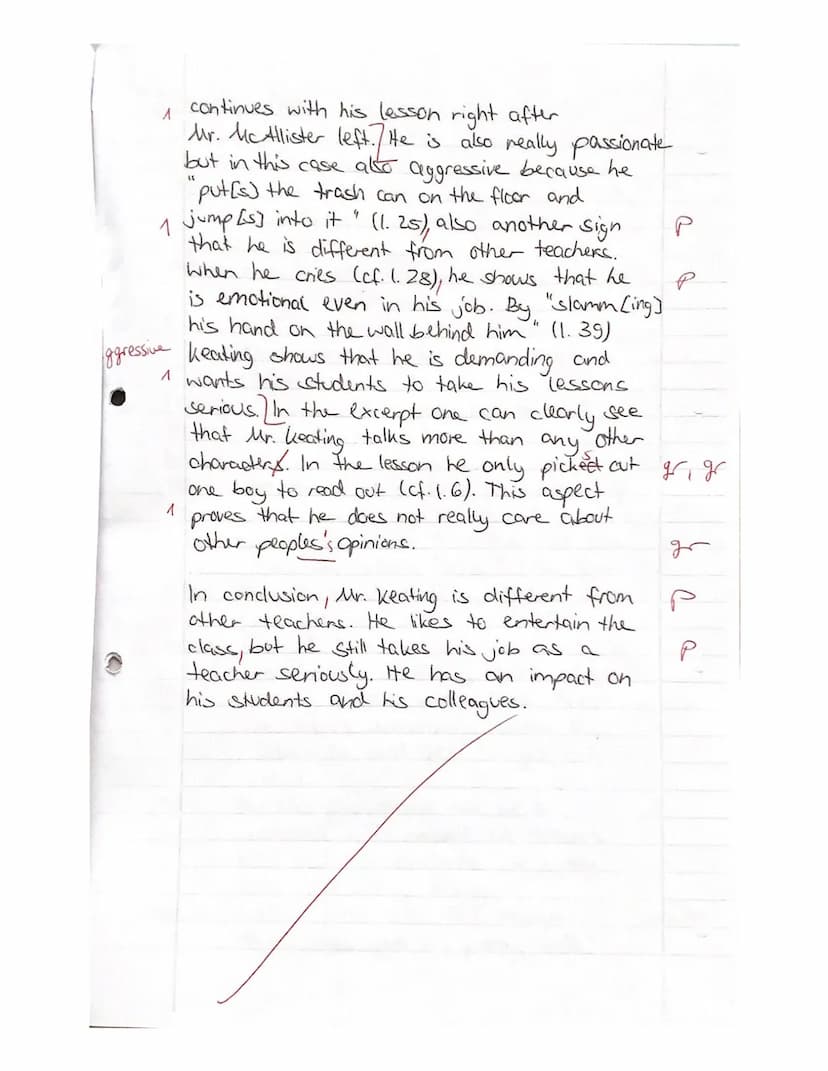 1 continues with his lesson right after
Mr. McAllister left. He is also really passionate
but in this case also aggressive because he
"put[s] the trash can on the floor and
1 jump[s] into it" (l. 25), also another sign P
that he is different from other teachers.
When he cries (cf. l. 28), he shows that he P
is emotional even in his job. By "slamm[ing]
his hand on the wall behind him" (l. 39)
ggressive Keating shows that he is demanding and
1 wants his students to take his lessons
serious. In the excerpt one can clearly see
that Mr. Keating talks more than any other
characters. In the lesson he only picks out gr, gr
one boy to read out (cf. l. 6). This aspect
1 proves that he does not really care about
other peoples's opinions. gr
In conclusion, Mr. Keating is different from P
other teachers. He likes to entertain the
class, but he still takes his job as a P
teacher seriously. He has an impact on
his students and his colleagues.